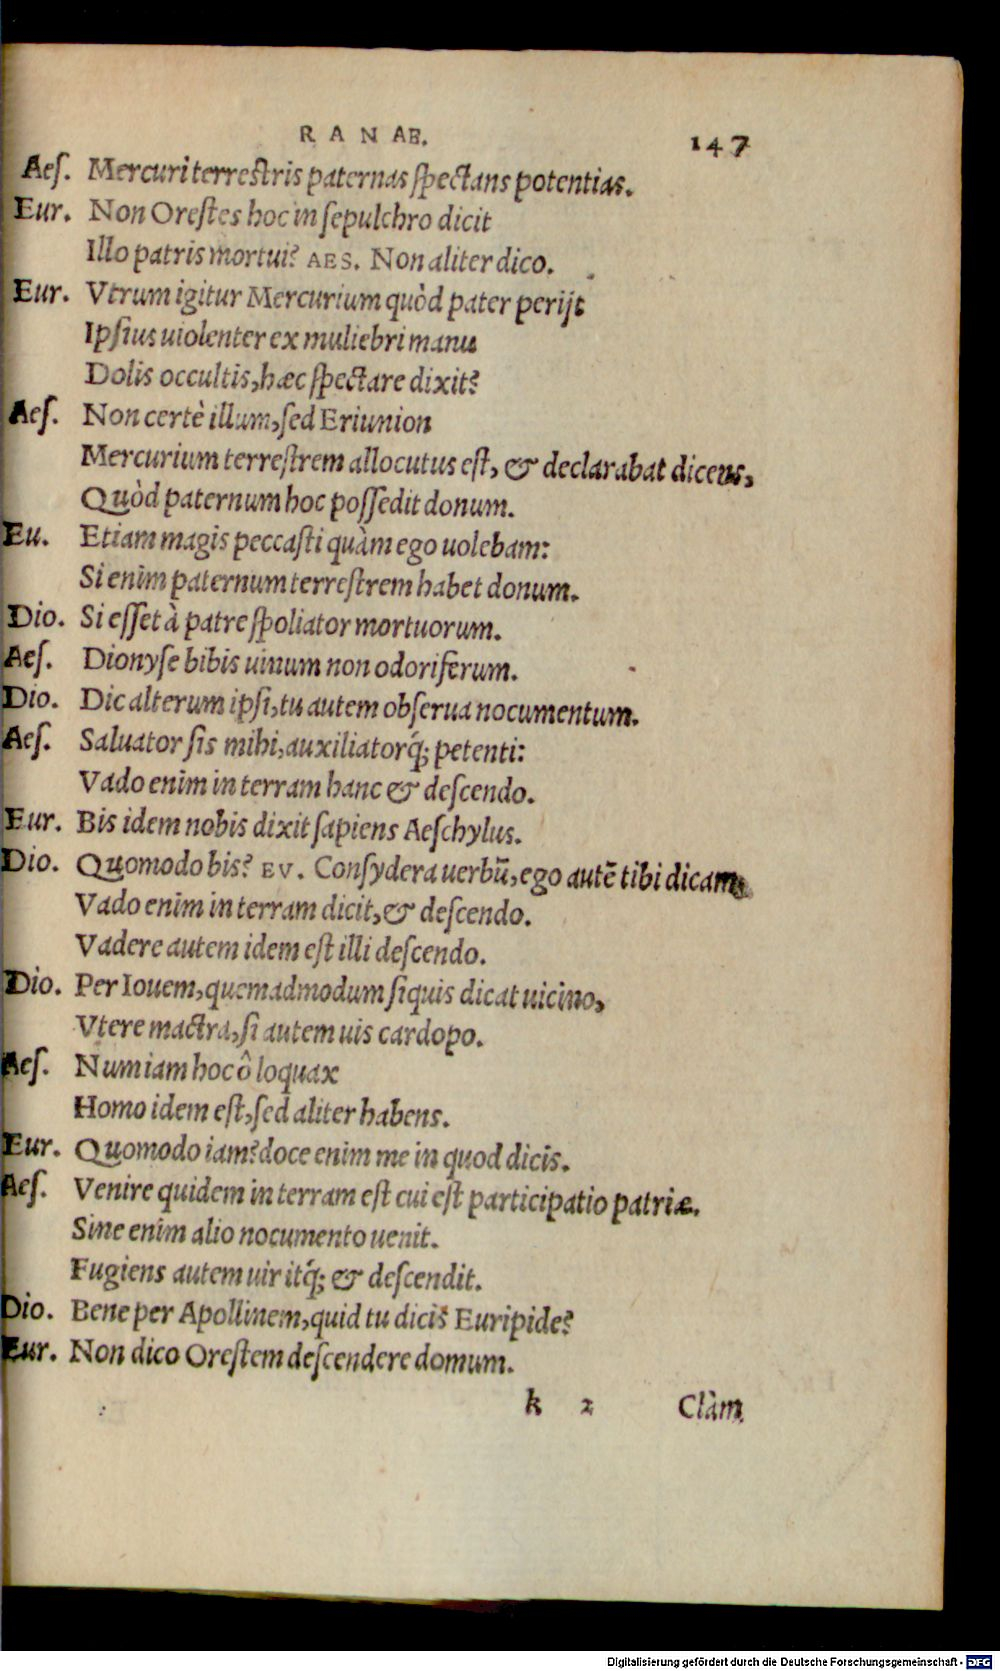 RANAE. 147
Aeſ. Mercuri terreſtris paternas ſpectans potentias.
Eur. Non Oreſtes hoc in ſepulchro dicit
Illo patris mortui? AES. Non aliter dico.
Eur. Vtrum igitur Mercurium quòd pater perijt
Ipſius uiolenter ex muliebri manu
Dolis occultis, hæc ſpectare dixit?
Aeſ. Non certè illum, ſed Eriunion
Mercurium terreſtrem allocutus eſt, & declarabat dicens,
Quòd paternum hoc poſſedit donum.
Eu. Etiam magis peccaſti quàm ego uolebam:
Si enim paternum terreſtrem habet donum.
Dio. Si eſſet à patre ſpoliator mortuorum.
Aeſ. Dionyſe bibis uinum non odoriferum.
Dio. Dic alterum ipſi, tu autem obſerua nocumentum.
Aeſ. Saluator ſis mihi, auxiliatorq́; petenti:
Vado enim in terram hanc & deſcendo.
Eur. Bis idem nobis dixit ſapiens Aeſchylus.
Dio. Quomodo bis? EV. Conſydera uerbū, ego autē tibi dicam,
Vado enim in terram dicit, & deſcendo.
Vadere autem idem eſt illi deſcendo.
Dio. Per Iouem, quemadmodum ſiquis dicat uicino,
Vtere mactra, ſi autem uis cardopo.
Aeſ. Num iam hoc ô loquax
Homo idem eſt, ſed aliter habens.
Eur. Quomodo iam? doce enim me in quod dicis.
Aeſ. Venire quidem in terram eſt cui eſt participatio patriæ.
Sine enim alio nocumento uenit.
Fugiens autem uir itq́; & deſcendit.
Dio. Bene per Apollinem, quid tu dicis Euripide?
Eur. Non dico Oreſtem deſcendere domum.
k 2 Clàm
Digitalisierung gefördert durch die Deutsche Forschungsgemeinschaft - DFG